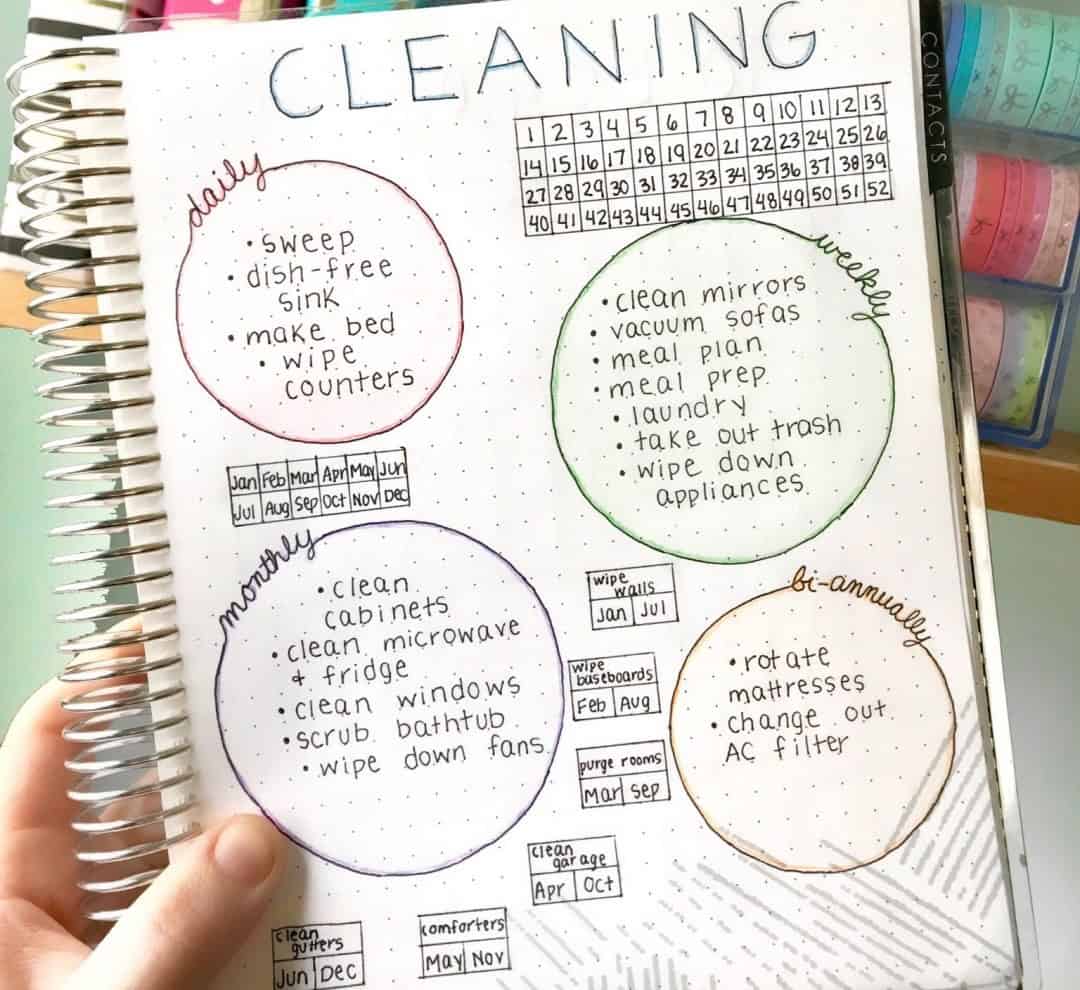 CLEANING
CONTACTS
1 2 3 4 5 6 7 8 9 10 11 12 13
14 15 16 17 18 19 20 21 22 23 24 25 26
27 28 29 30 31 32 33 34 35 36 37 38 39
40 41 42 43 44 45 46 47 48 49 50 51 52
daily
• sweep
• dish-free
sink
• make bed
• wipe
counters
weekly
• clean mirrors
• vacuum sofas
• meal plan
• meal prep
• laundry
• take out trash
• wipe down
appliances
Jan Feb Mar Apr May Jun
Jul Aug Sep Oct Nov Dec
monthly
• clean
cabinets
• clean microwave
+ fridge
• clean windows
• scrub bathtub
• wipe down fans
wipe
walls
Jan Jul
wipe
baseboards
Feb Aug
purge rooms
Mar Sep
clean
garage
Apr Oct
comforters
May Nov
clean
gutters
Jun Dec
bi-annually
• rotate
mattresses
• change out
AC filter